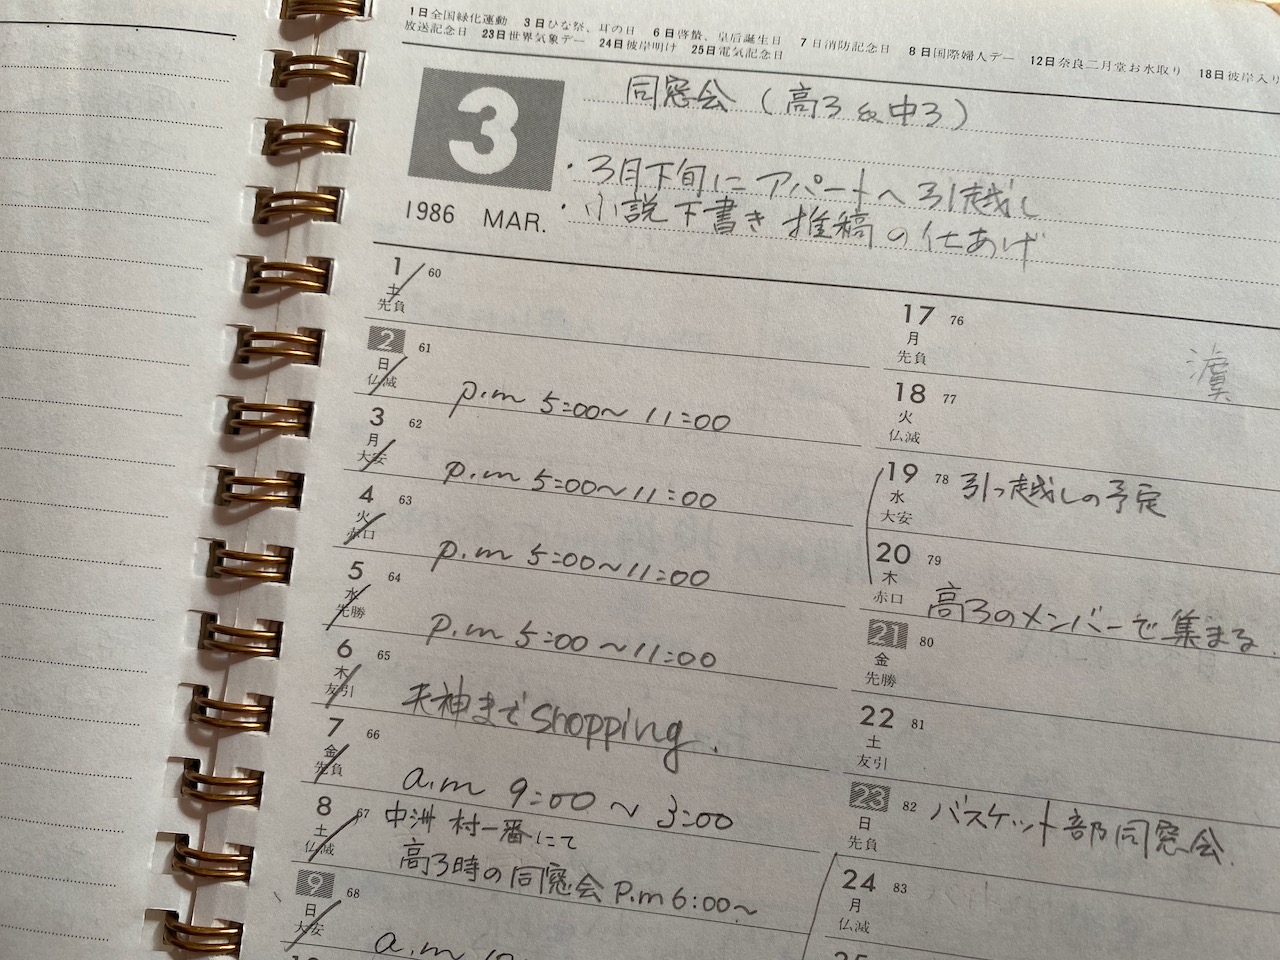 1日全国緑化運動 3日ひな祭、耳の日 6日啓蟄、皇后誕生日 7日消防記念日 8日国際婦人デー 12日奈良二月堂お水取り 18日彼岸入り
放送記念日 23日世界気象デー 24日彼岸明け 25日電気記念日
3
1986 MAR.
同窓会(高3&中3)
・3月下旬にアパートへ引越し
・小説下書き推稿の仕あげ
1 60
土
先負
2 61
日
仏滅
p.m 5:00〜11:00
3 62
月
大安
p.m 5:00〜11:00
4 63
火
赤口
p.m 5:00〜11:00
5 64
水
先勝
p.m 5:00〜11:00
6 65
木
友引
天神までshopping.
7 66
金
先負
a.m 9:00〜3:00
8 67
土
仏滅
中洲 村一番にて
高3時の同窓会 p.m 6:00〜
9 68
日
大安
a.m
17 76
月
先負
18 77
火
仏滅
19 78
水
大安
引っ越しの予定
20 79
木
赤口
高3のメンバーで集まる.
21 80
金
先勝
22 81
土
友引
23 82
日
先負
バスケット部同窓会.
24 83
月
仏滅